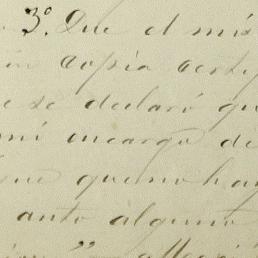 3º. Que el mis
copia certi
e se declaró qu
mi encargo de
que no hay
anto alguno